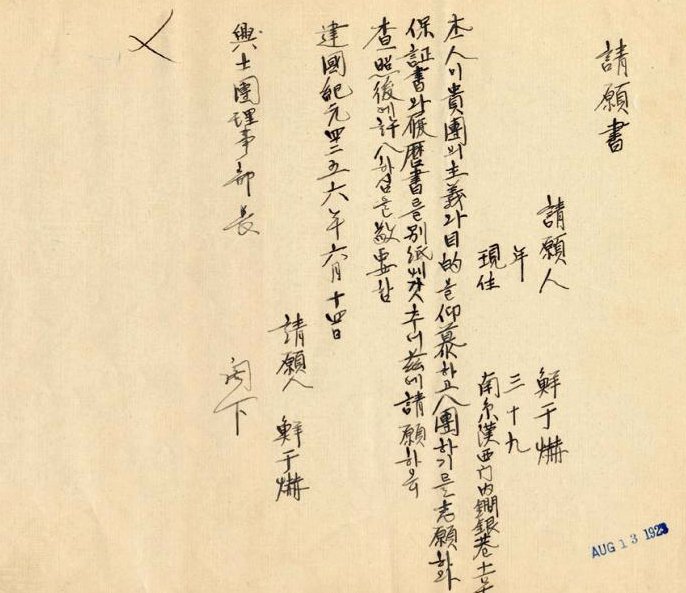 請願書
請願人 鮮于爀
年 三十九
現住 南京漢西門內鐧銀巷十二
本人이 貴團의 主義와 目的을 仰慕하고 入團하기를 志願하와
保証書와 履歷書를 別紙 갓초아 玆에 請願하오
査照後에 許入하심을 敬要함
建國紀元四二五六年六月十四日
請願人 鮮于爀
興士團理事部長 閤下
AUG 13 1923